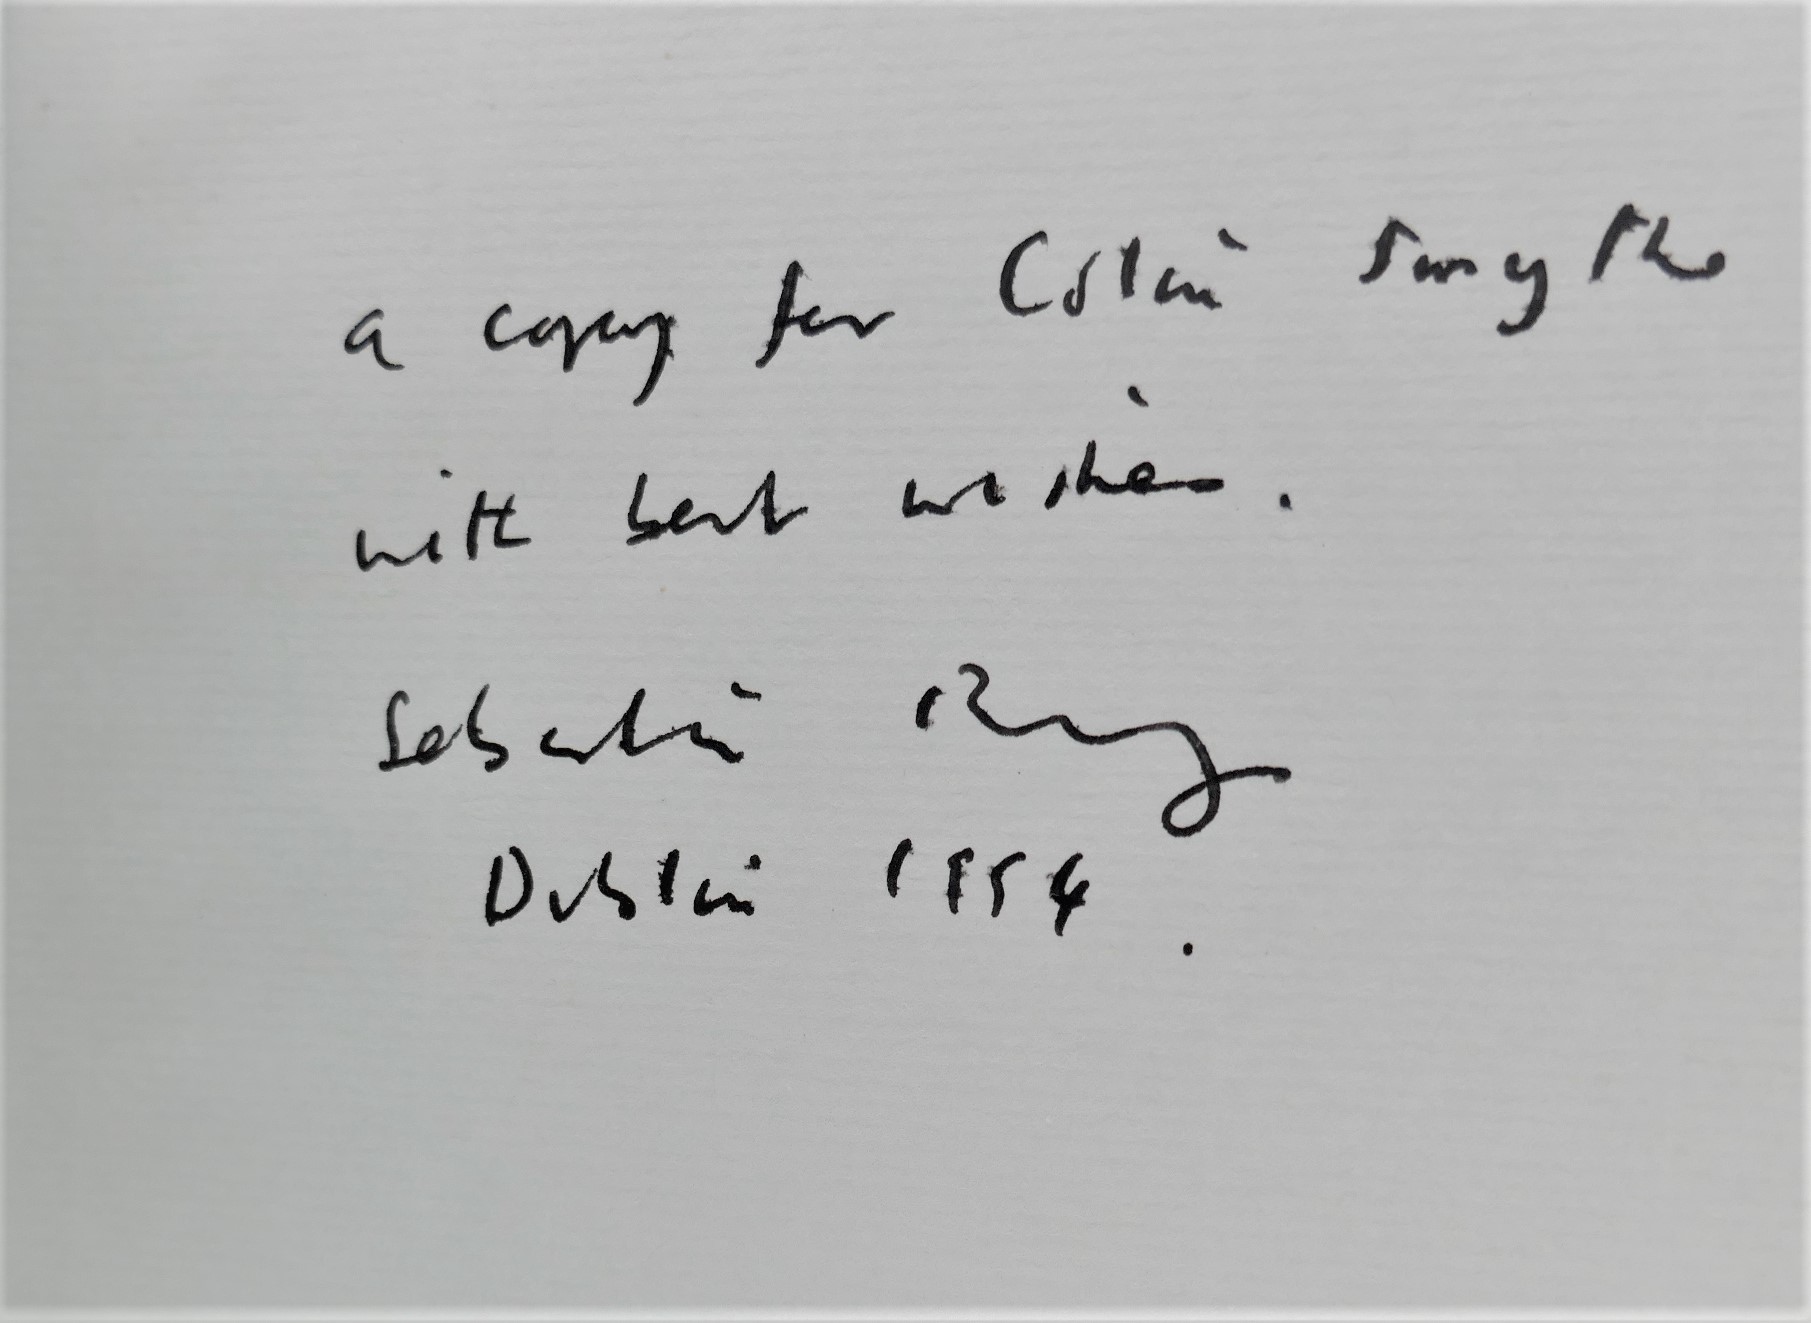 a copy for Colin Smythe
with best wishes.
Sebastian Barry
Dublin 1994.